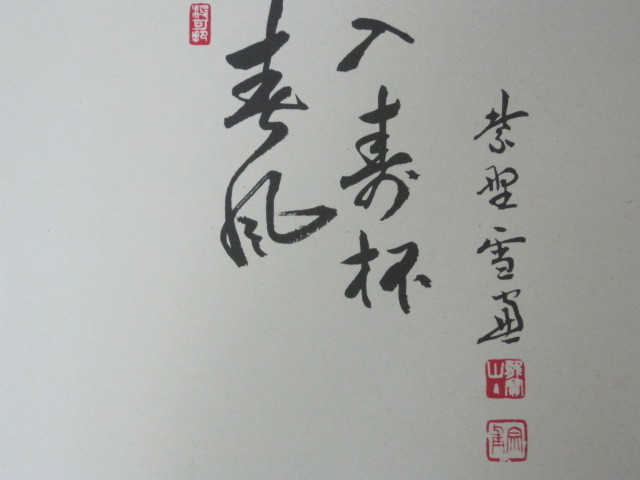 春風
入寿杯
紫野雪窓